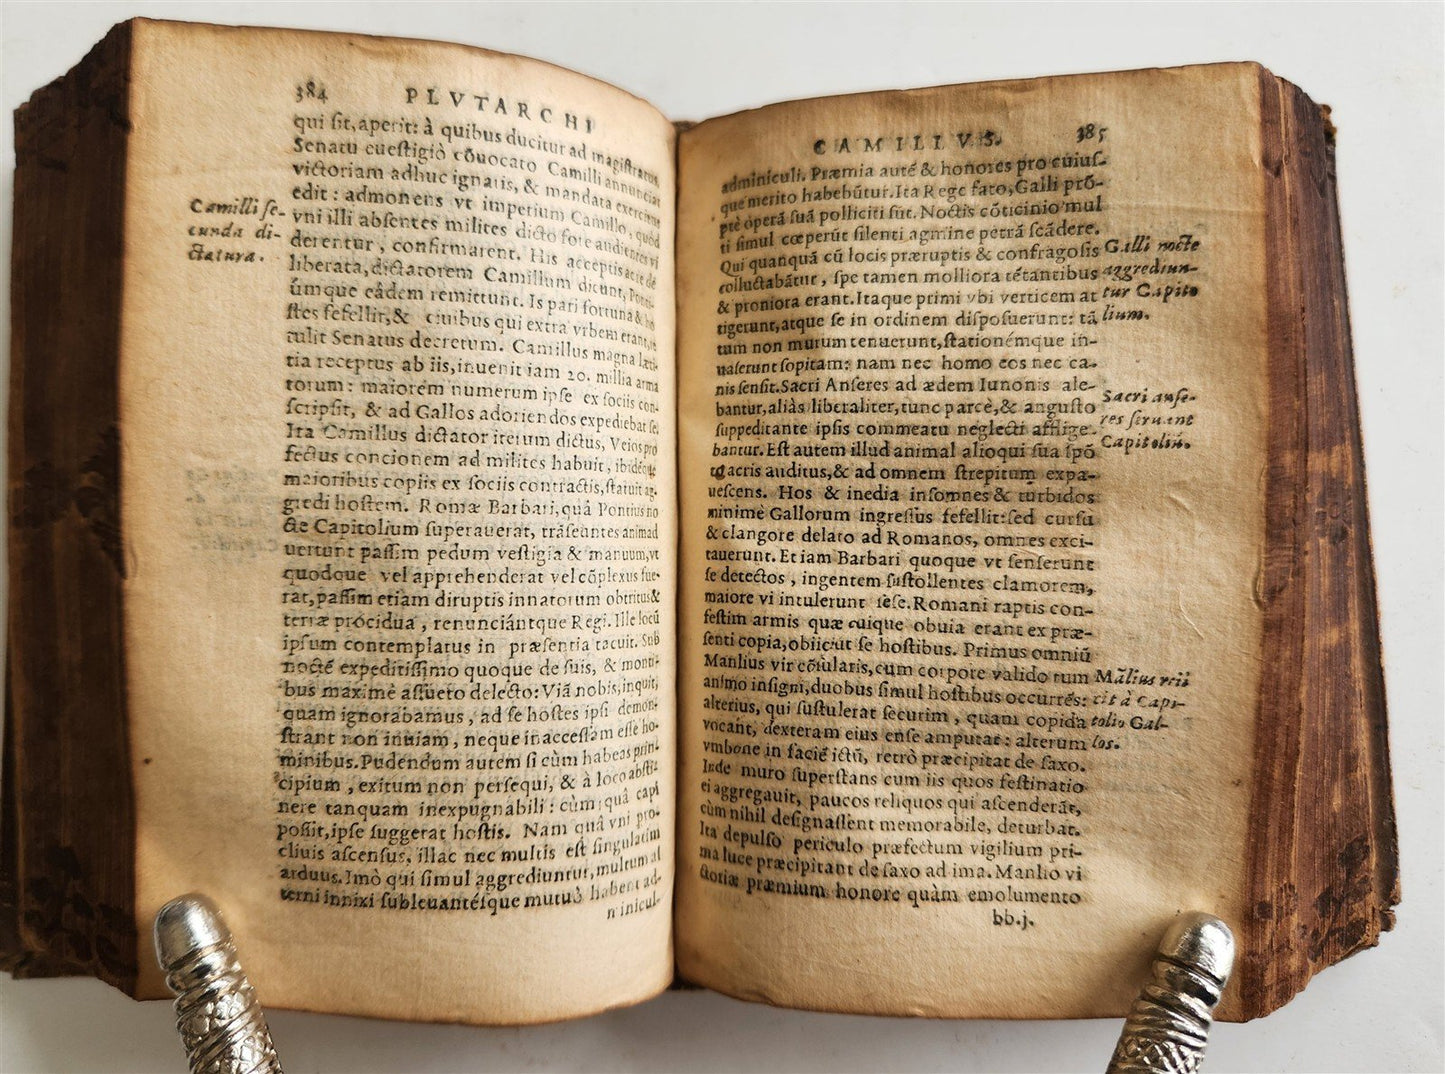 384 PLVTARCHI
qui sit, aperit: à quibus ducitur ad magistratus.
Senatu euestigiò cōuocato Camilli annunciat
victoriam adhuc ignatis, & mandata exercitus
edit: admonens vt imperium Camillo, quòd
vni illi absentes milites dicto fore audientes vi
derentur, confirmarent. His acceptis ac re de
liberata, dictatorem Camillum dicunt, Ponti-
úmque eâdem remittunt. Is pari fortuna & ho
stes fefellit, & ciuibus qui extra vrbem erant,
tulit Senatus decretum. Camillus magna læti-
tia receptus ab iis, inuenit iam 20. millia arma
torum: maiorem numerum ipse ex sociis con-
scripsit, & ad Gallos adoriendos expediebat se.
Ita Camillus dictator iterum dictus, Veios pro
fectus concionem ad milites habuit, ibidémque
maioribus copiis ex sociis contractis, statuit ag-
gredi hostem. Romæ Barbari, quâ Pontius no
cte Capitolium superauerat, trāseuntes animad
uertunt passim pedum vestigia & manuum, vt
quodque vel apprehenderat vel cōplexus fue-
rat, passim etiam diruptis innatorum obtritus &
terræ prócidua, renunciántque Regi. Ille locū
ipsum contemplatus in præsentia tacuit. Sub
nocté expeditissimo quoque de suis, & monti-
bus maximè assueto delecto: Viā nobis, inquit,
quam ignorabamus, ad se hostes ipsi demon-
strant non inuiam, neque inaccessam esse ho-
minibus. Pudendum autem si cùm habeas prin-
cipium, exitum non persequi, & à loco absti-
nere tanquam inexpugnabili: cùm, quâ capi
possit, ipse suggerat hostis. Nam quâ vni pro-
cliuis ascensus, illac nec multis est singulatim
arduus. Imò qui simul aggrediuntur, multum al
terni innixi subleuantésque mutuò habent ad-
minicul-
Camilli se-
cunda di-
ctatura.
CAMILLVS. 385
adminiculi. Præmia autē & honores pro cuius-
que merito habebūtur. Ita Rege fato, Galli prō-
ptè operā suā polliciti sūt. Noctis cōticinio mul
ti simul cœperūt silenti agmine petrā scādere.
Qui quanquā cū locis præruptis & confragosis
colluctabātur, spe tamen molliora tētantibus
& proniora erant. Itaque primi vbi verticem at
tigerunt, atque se in ordinem disposuerunt: tā
tum non murum tenuerunt, stationémque in-
uaserunt sopitam: nam nec homo eos nec ca-
nis sensit. Sacri Anseres ad ædem Iunonis ale-
bantur, aliàs liberaliter, tunc parcè, & angusto
suppeditante ipsis commeatu neglecti afflige-
bantur. Est autem illud animal alioqui sua spō
te acris auditus, & ad omnem strepitum expa-
uescens. Hos & inedia insomnes & turbidos
minimè Gallorum ingressus fefellit: sed cursu
& clangore delato ad Romanos, omnes exci-
tauerunt. Etiam Barbari quoque vt senserunt
se detectos, ingentem sustollentes clamorem,
maiore vi intulerunt sese. Romani raptis con-
festim armis quæ cuique obuia erant ex præ-
senti copia, obiiciūt se hostibus. Primus omniū
Manlius vir cōsularis, cum corpore valido tum
animo insigni, duobus simul hostibus occurrēs:
alterius, qui sustulerat securim, quam copida
vocant, dexteram eius ense amputat: alterum
vmbone in faciē ictū, retrò præcipitat de saxo.
Inde muro superstans cum iis quos festinatio
ei aggregauit, paucos reliquos qui ascenderāt,
cùm nihil designassent memorabile, deturbat.
Ita depulso periculo præfectum vigilium pri-
ma luce præcipitant de saxo ad ima. Manlio vi
ctoriæ præmium honore quàm emolumento
bb.j.
Galli nocte
aggrediun-
tur Capito
lium.
Sacri anse-
res seruant
Capitoliū.
Mālius reii
cit à Capi-
tolio Gal-
los.